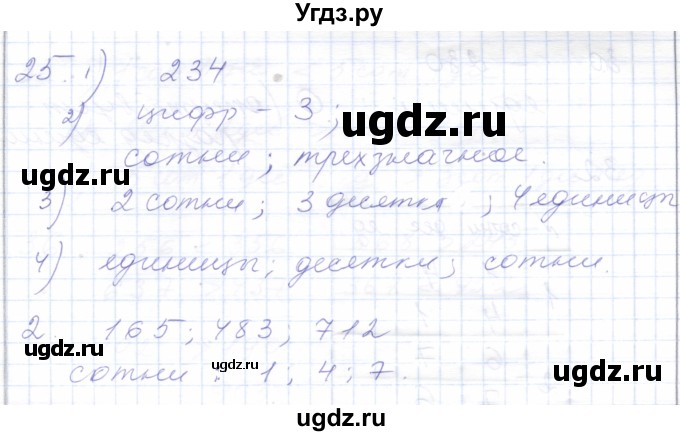 Угдз.ру
25. 1) 234
2) цифр - 3;
сотни; трехзначное.
3) 2 сотни; 3 десятка; 4 единицы
4) единицы; десятки; сотни.
2. 165; 483; 712
сотни: 1; 4; 7.
ugdz.ru
ugdz.ru
ugdz.ru
ugdz.ru
ugdz.ru
ugdz.ru
ugdz.ru
ugdz.ru